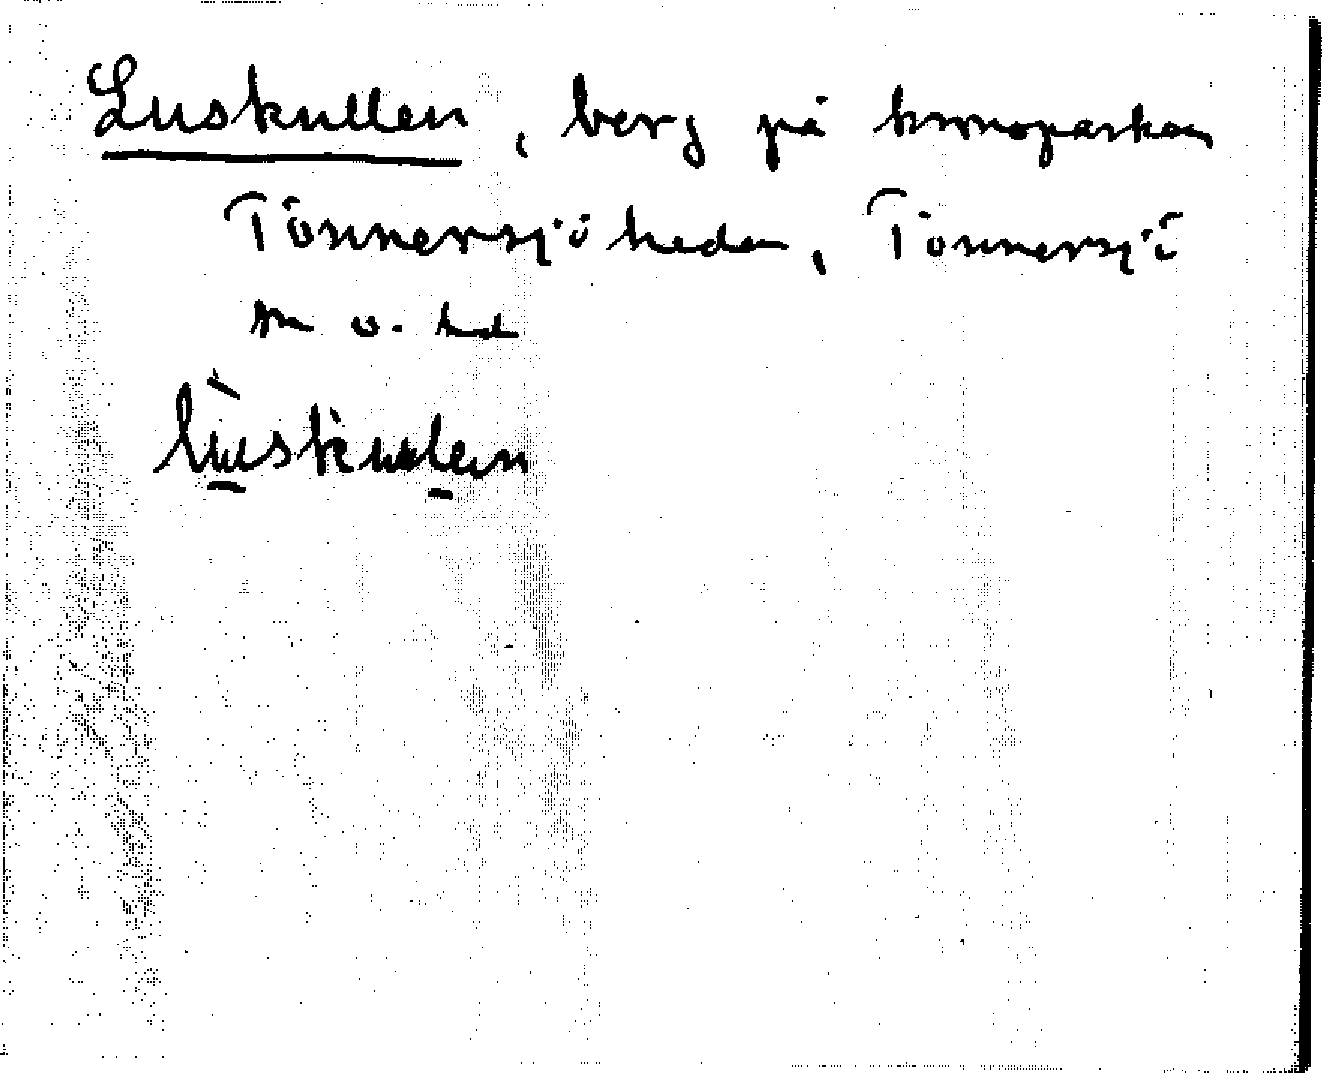 Luskullen, berg på kronoparken
Tönnersjöheden, Tönnersjö
sn o. hd
lùskulen